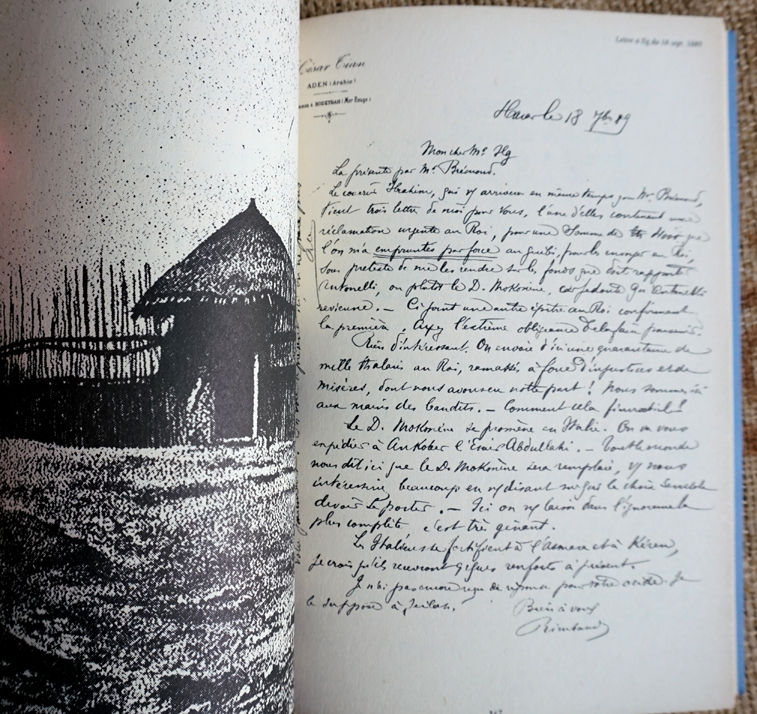 Lettre à Ilg du 18 sept. 1889
César Tian
ADEN (Arabie)
HODEYDAH (Mer Rouge)
Harar le 18 7bre 89
Mon cher Mr Ilg
La présente par Mr Brémond.
Le courrier Ibrahim, qui y arrivera en même temps que Mr Brémond,
tient trois lettres de moi pour vous, l'une d'elles contenant une
réclamation urgente au Roi, pour une somme de que
l'on m'a empruntés par force au guébi, pour les envoyer au Roi,
sous prétexte de me les rendre sur les fonds que doit rapporter
Antonelli, ou plutôt le D. Mokonène, en attendant qu'Antonelli
revienne. — Ci joint une autre épître au Roi confirmant
la première. Ayez l'extrême obligeance de la faire parvenir.
Rien d'intéressant. On envoie d'ici une quarantaine de
mille thalaris au Roi, ramassés à force d'injustices et de
misères, dont nous avons eu notre part ! Nous sommes ici
aux mains des bandits. — Comment cela finira-t-il !
Le D. Mokonène se promène en Italie. On va vous
expédier à Ankober l'Émir Abdullahi. — Tout le monde
nous dit ici que le D. Mokonène sera remplacé, vs nous
intéresseriez beaucoup en ns disant sur qui le choix semble
devoir se porter. — Ici on ns laisse dans l'ignorance la
plus complète c'est très gênant.
Les Italiens se fortifient à l'Asmara et à Kéren,
je crois qu'ils recevront qques renforts à présent.
Je n'ai pas encore reçu de réponse pour votre Je
le suppose à Zeilah.
Bien à vous
Rimbaud